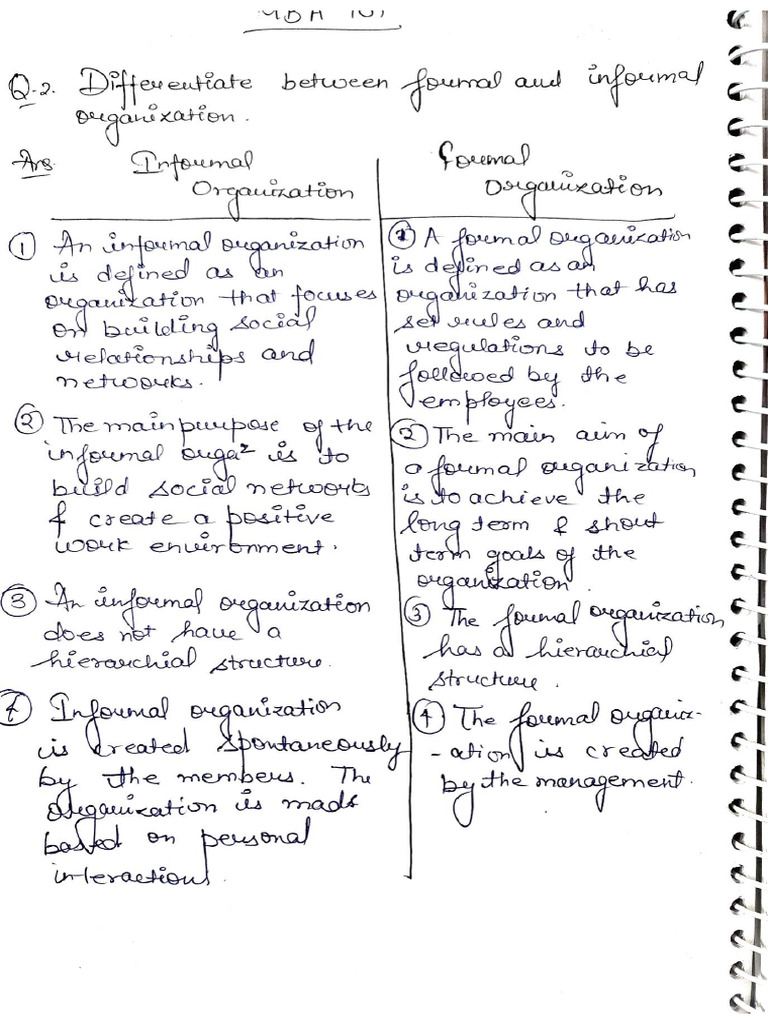 MBA 101
Q.2. Differentiate between formal and informal
organization.
Ans
Informal
Organization
① An informal organization
is defined as an
organization that focuses
on building social
relationships and
networks.
② The main purpose of the
informal orgaz is to
build social networks
& create a positive
work envirnment.
③ An informal organization
does not have a
hierarchial structure.
④ Informal organization
is created spontaneously
by the members. The
organization is made
based on personal
interaction.
Formal
Organization
① A formal organization
is defined as an
organization that has
set rules and
regulations to be
followed by the
employees.
② The main aim of
a formal organization
is to achieve the
long term & short
term goals of the
organization.
③ The formal organization
has a hierarchial
structure.
④ The formal organiz-
-ation is created
by the management.